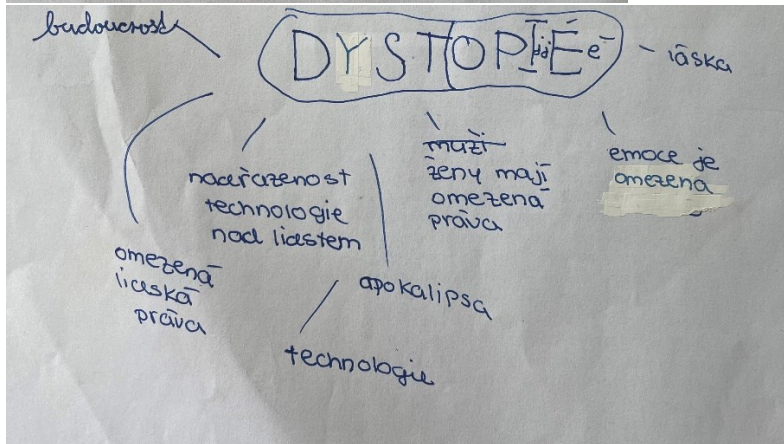 budoucnost
DYSTOPIE
láska
nadřazenost
technologie
nad lidstem
muži
ženy mají
omezená
práva
emoce je
omezena
omezená
lidská
práva
apokalipsa
technologie